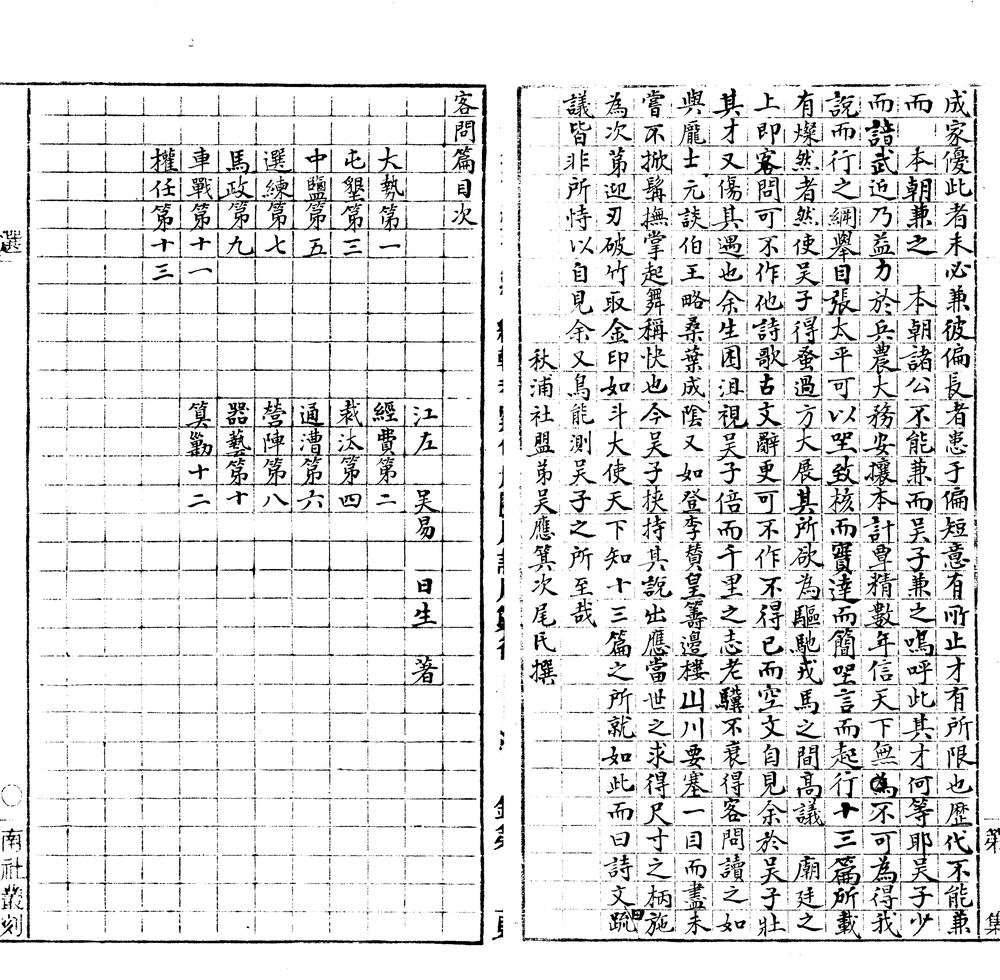 成家優此者未必兼彼偏長者患于偏短意有所止才有所限也歷代不能兼
而　本朝兼之　本朝諸公不能兼而吴子兼之嗚呼此其才何等耶吴子少
而諳武近乃益力於兵農大務安攘本計覃精數年信天下無為不可為得我
說而行之綱舉目張太平可以坐致核而實達而簡坐言而起行十三篇所載
有燦然者然使吴子得蚤遇方大展其所欲為驅馳戎馬之間高議　廟廷之
上即客問可不作他詩歌古文辭更可不作不得已而空文自見余於吴子壯
其才又傷其遇也余生困沮視吴子倍而千里之志老驥不衰得客問讀之如
與龐士元談伯王略桑葉成陰又如登李贊皇籌邊樓山川要塞一目而盡未
嘗不掀髯撫掌起舞稱快也今吴子挾持其說出應當世之求得尺寸之柄施
為次第迎刃破竹取金印如斗大使天下知十三篇之所就如此而曰詩文疏
議皆非所恃以自見余又烏能測吴子之所至哉
秋浦社盟弟吴應箕次尾氏撰
第
集
客問篇目次
江左　吴易　日生　著
大勢第一　經費第二
屯墾第三　裁汰第四
中鹽第五　通漕第六
選練第七　營陣第八
馬政第九　器藝第十
車戰第十一　算勦十二
權任第十三
選
○
南社叢刻